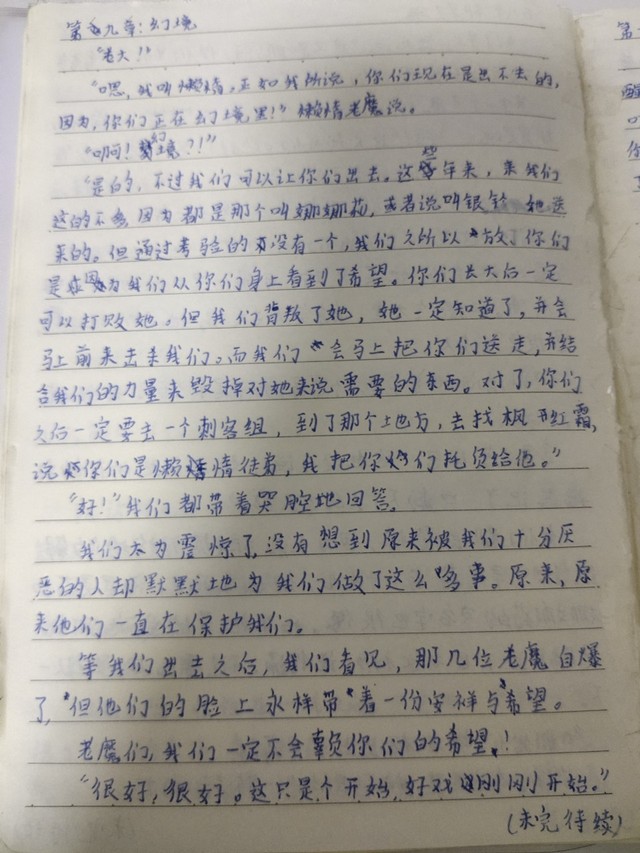 第九章：幻境
“老大！”
“嗯，我叫懒惰，正如我所说，你们现在是出不去的，
因为，你们正在幻境里！”懒惰老魔说。
“啊！幻境？！”
“是的，不过我们可以让你们出去。这些年来，来我们
这的不多，因为都是那个叫娜娜莉，或者说叫银铃她送
来的。但通过考验的有没有一个，我们之所以放了你们
是因为我们从你们身上看到了希望。你们长大后一定
可以打败她。但我们背叛了她，她一定知道了，并会
马上前来击杀我们。而我们会马上把你们送走，并结
合我们的力量来毁掉对她来说需要的东西。对了，你们
之后一定要去一个刺客组，到了那个地方，去找枫红霜，
说你们是懒惰徒弟，我把你们托负给他。”
“好！”我们都带着哭腔地回答。
我们太为震惊了，没有想到原来被我们十分厌
恶的人却默默地为我们做了这么多事。原来，原
来他们一直在保护我们。
等我们出去之后，我们看见，那几位老魔自爆
了，但他们的脸上永样带着一份安祥与希望。
老魔们，我们一定不会辜负你们的希望！
“很好，很好。这只是个开始，好戏刚刚开始。”
（未完待续）
第